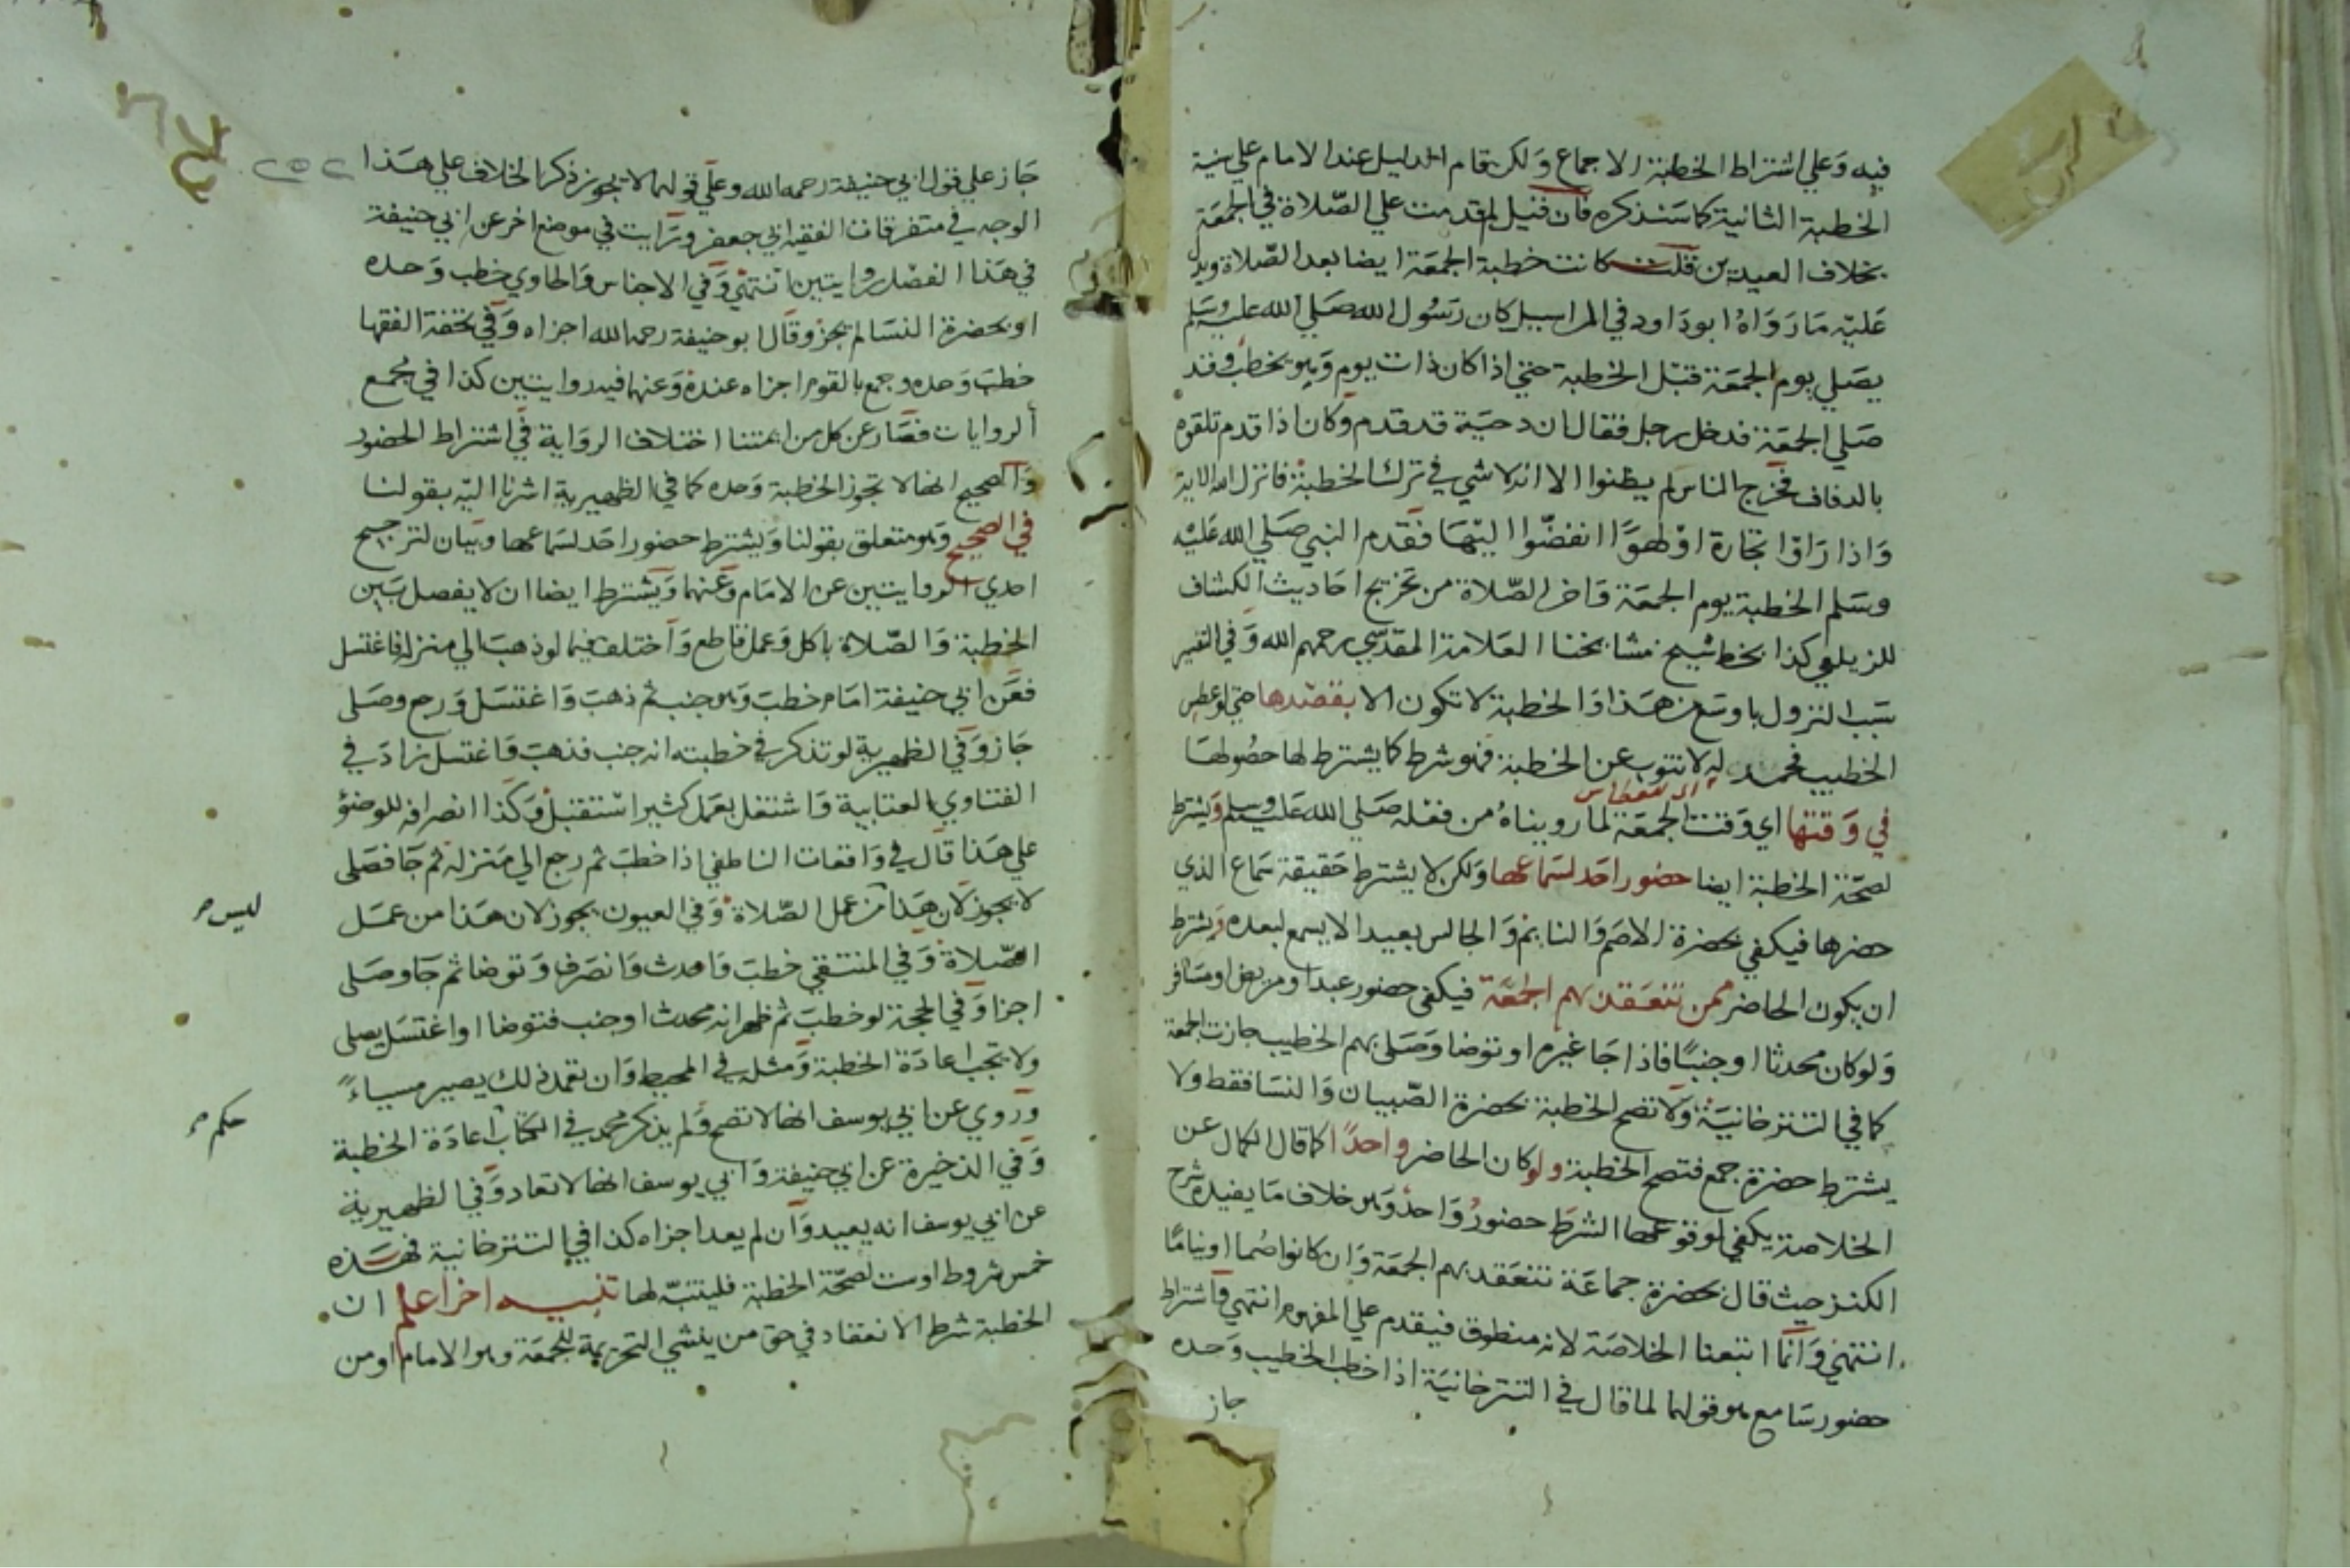 فيه وعلي اشتراط الخطبة الاجماع ولكن قام الدليل عند الامام علي سنية
الخطبة الثانية كما سنذكره فان قيل لم قدمت علي الصلاة في الجمعة
بخلاف العيدين قلت كانت خطبة الجمعة ايضا بعد الصلاة ويدل
عليه ما رواه ابو داود في المراسيل كان رسول الله صلي الله عليه وسلم
يصلي يوم الجمعة قبل الخطبة حتي اذا كان ذات يوم وهو يخطب وقد
صلي الجمعة فدخل رجل فقال ان دحية قد قدم وكان اذا قدم تلقوه
بالدفاف فخرج الناس لم يظنوا الا انه لا شي في ترك الخطبة فانزل الله الاية
واذا راوا تجارة او لهوا انفضوا اليها فقدم النبي صلي الله عليه
وسلم الخطبة يوم الجمعة واخر الصلاة من تخريج احاديث الكشاف
للزيلعي كذا بخط شيخ مشايخنا العلامة المقدسي رحمهم الله وفي التفسير
سبب النزول باوسع من هذا والخطبة لا تكون الا بقصدها حتي لو عطس
الخطيب فحمد له لا تنوب عن الخطبة فهو شرط كما يشترط لها حصولها
في وقتها اي وقت الجمعة لما رويناه من فعله صلي الله عليه وسلم ويشترط
لصحة الخطبة ايضا حضور احد لسماعها ولكن لا يشترط حقيقة سماع الذي
حضرها فيكفي بحضرة الاصم والنايم والجالس بعيدا لا يسمع لبعده ويشترط
ان يكون الحاضر ممن تنعقد بهم الجمعة فيكفي حضور عبد او مريض او مسافر
ولو كان محدثا او جنبا فاذا جا غيره او توضا وصلي بهم الخطيب جازت الجمعة
كما في التترخانية ولا تصح الخطبة بحضرة الصبيان والنسا فقط ولا
يشترط حضرة جمع فتصح الخطبة ولو كان الحاضر واحدا كما قال الكمال عن
الخلاصة يكفي لوقوعها الشرط حضور واحد وهو خلاف ما يفيده شرح
الكنز حيث قال بحضرة جماعة تنعقد بهم الجمعة وان كانوا صما او نياما
انتهي وانما اتبعنا الخلاصة لانه منطوق فيقدم علي المفهوم انتهي واشتراط
حضور سامع هو قولهما لما قال في التترخانية اذا خطب الخطيب وحده
جاز
٢٥٢
جاز علي قول ابي حنيفة رحمه الله وعلي قولهما لا يجوز ذكر الخلاف علي هذا
الوجه في متفرقات الفقيه ابي جعفر ورايت في موضع اخر عن ابي حنيفة
في هذا الفصل روايتين انتهي وفي الاجناس والحاوي خطب وحده
او بحضرة النسا لم يجز وقال ابو حنيفة رحمه الله اجزاه وفي تحفة الفقها
خطب وحده وجمع بالقوم اجزاه عنده وعنهما فيه روايتين كذا في مجمع
الروايات فصار عن كل من ايمتنا اختلاف الرواية في اشتراط الحضور
والصحيح انها لا تجوز الخطبة وحده كما في الظهيرية اشرنا اليه بقولنا
في الصحيح وهو متعلق بقولنا ويشترط حضور احد لسماعها وبيان لترجيح
احدي الروايتين عن الامام وعنهما ويشترط ايضا ان لا يفصل بين
الخطبة والصلاة باكل وعمل قاطع واختلف فيما لو ذهب الي منزله فاغتسل
فعن ابي حنيفة امام خطب وهو جنب ثم ذهب واغتسل ورجع وصلي
جاز وفي الظهيرية لو تذكر في خطبته انه جنب فذهب فاغتسل زاد في
الفتاوي العتابية واشتغل بعمل كثير استقبل وكذا انصرافه للوضؤ
علي هذا قال في واقعات الناطفي اذا خطب ثم رجع الي منزله ثم جا فصلي
لا يجوز لان هذا من عمل الصلاة وفي العيون يجوز لان هذا من عمل
ليس
الصلاة وفي المنتقي خطب واحدث وانصرف وتوضا ثم جا وصلي
اجزا وفي الحجة لو خطب ثم ظهر انه محدث او جنب فتوضا او اغتسل يصلي
ولا تجب اعادة الخطبة ومثله في المحيط وان تعمد ذلك يصير مسياء
وروي عن ابي يوسف انها لا تصح ولم يذكر محمد في الكتاب اعادة الخطبة
حكم
وفي الذخيرة عن ابي حنيفة وابي يوسف انها لا تعاد وفي الظهيرية
عن ابي يوسف انه يعيد وان لم يعد اجزاه كذا في التترخانية فهذه
خمس شروط او ست لصحة الخطبة فليتنبه لها تنبيه اخر اعلم ان
الخطبة شرط الانعقاد في حق من ينشي التحريمة للجمعة وهو الامام او من